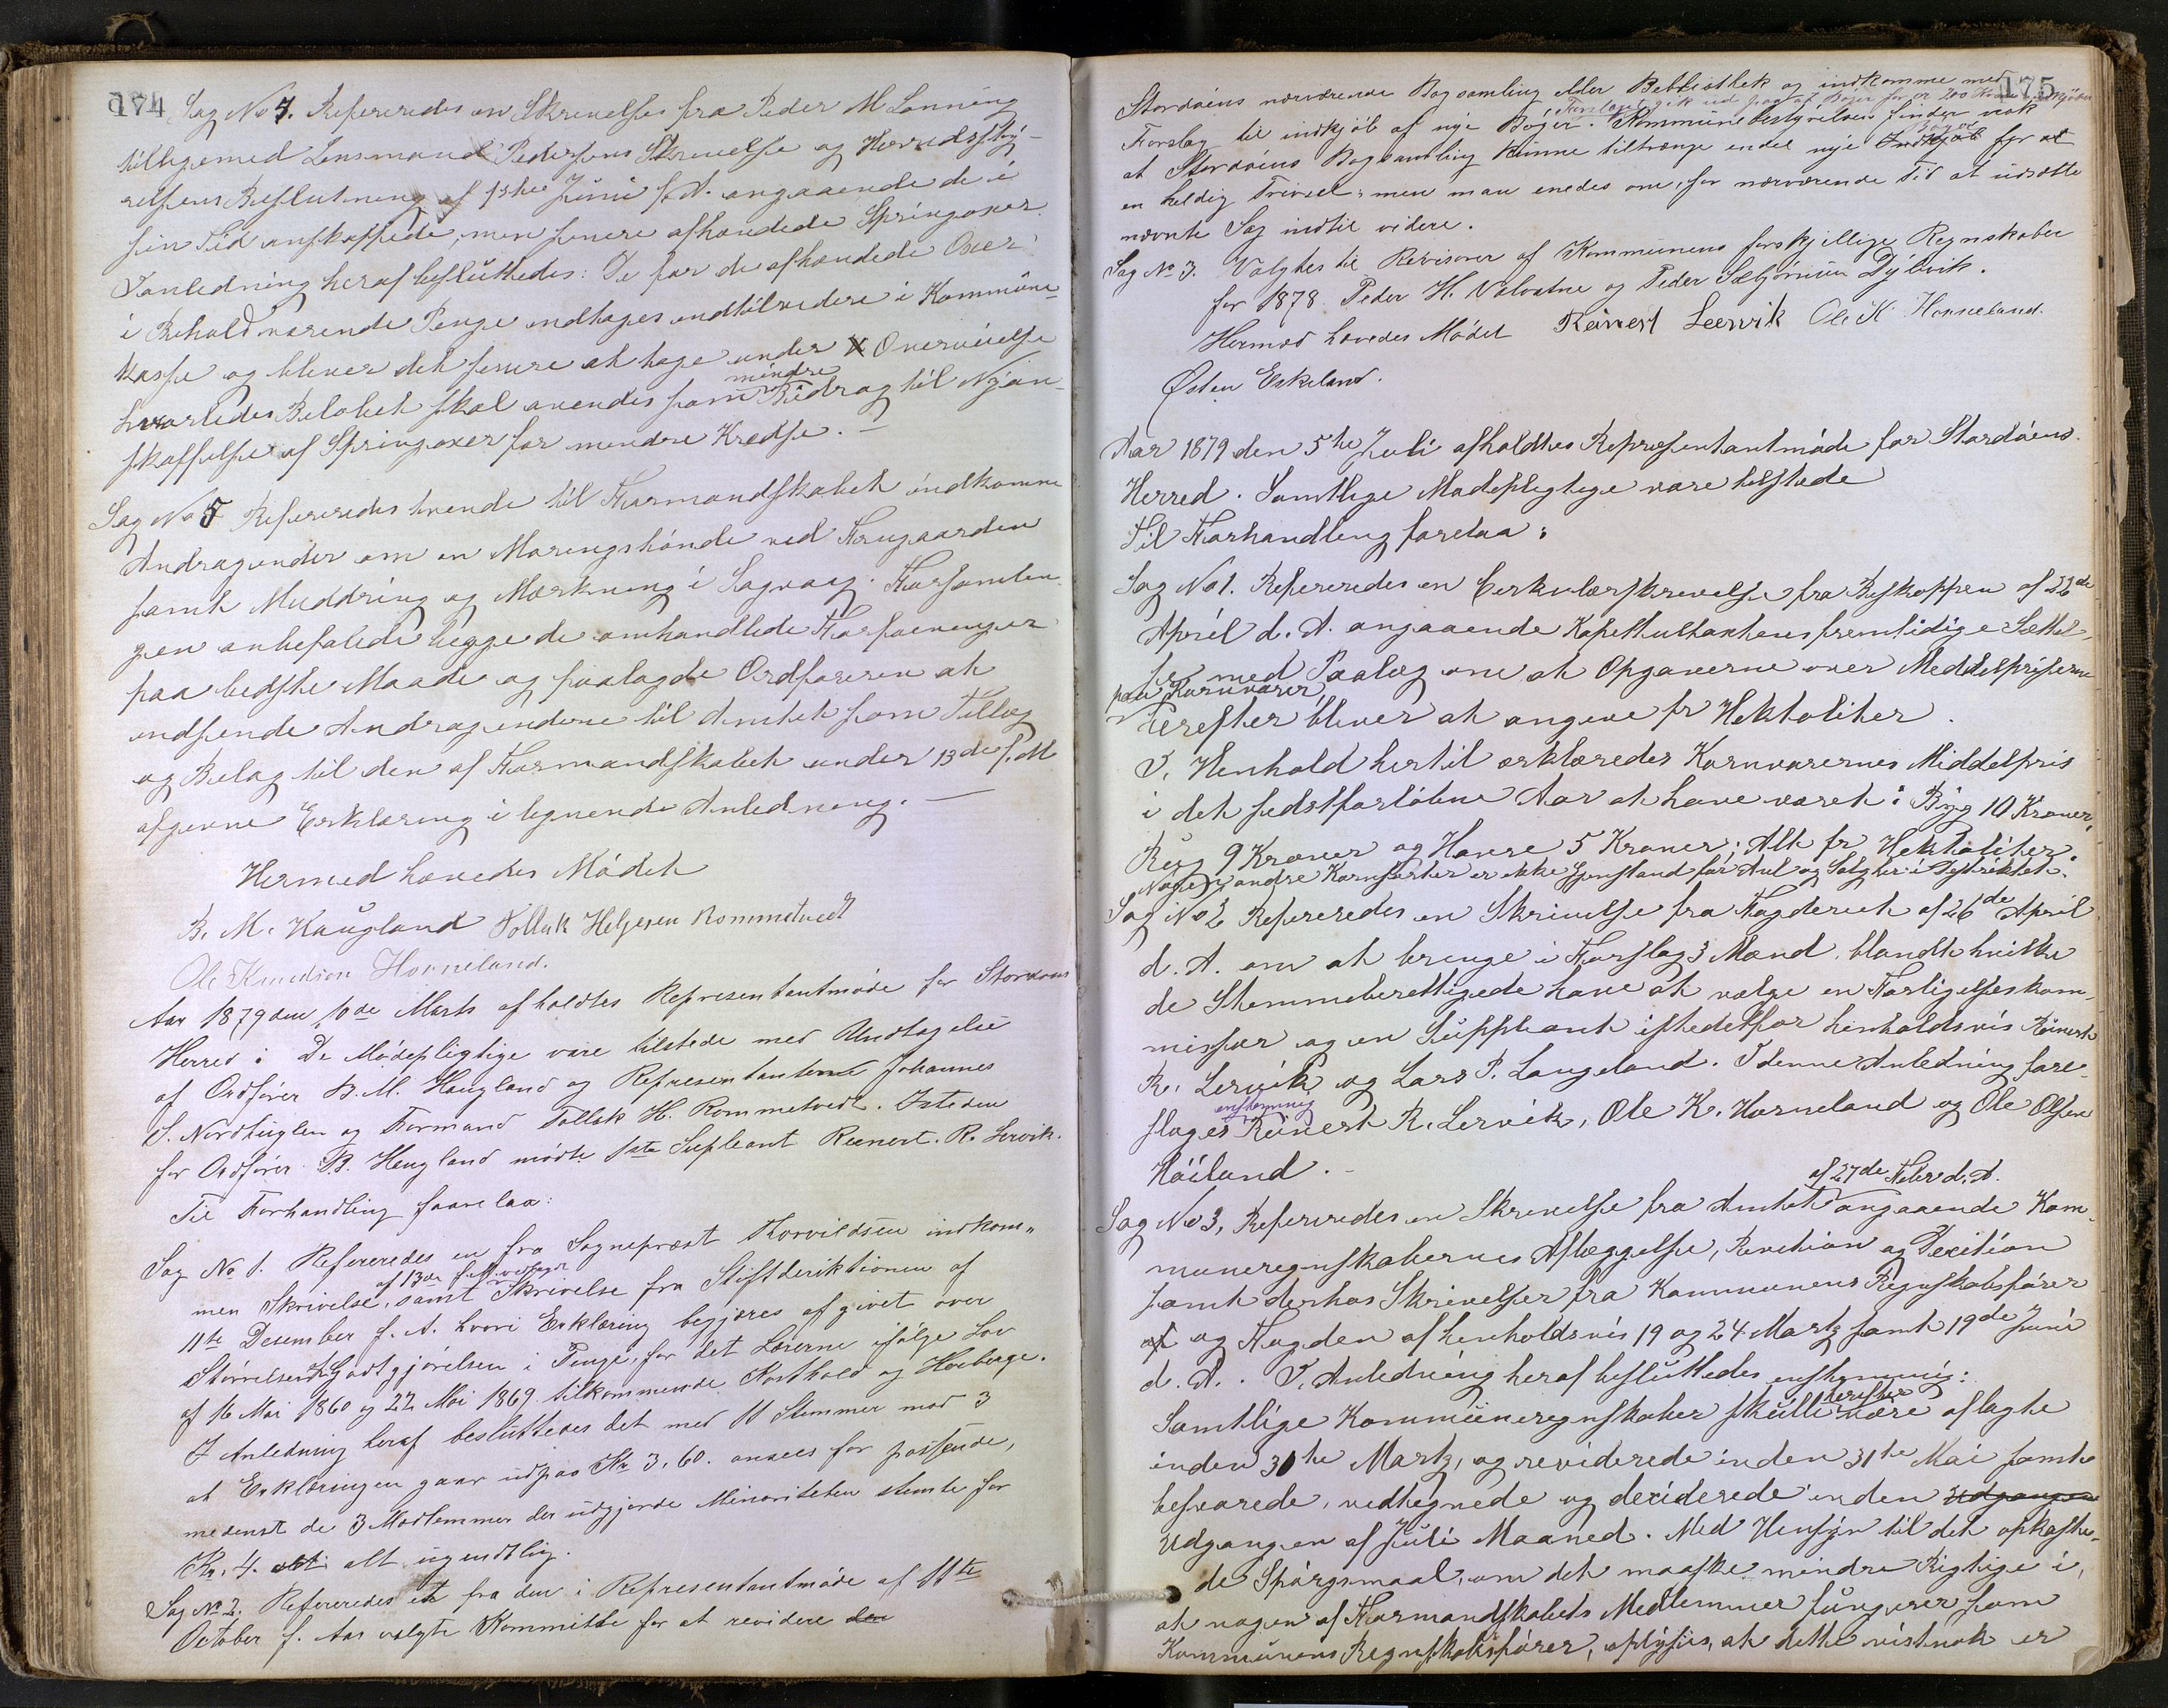 174
Sag No 4. Refereredes en Skrivelse fra Peder M Lønning
tilligemed Lensmand Pedersens Skrivelse og Herredssty-
relsens Beslutning af 1ste Juni f. A. angaaende de i
sin Tid anskaffede, men senere afhændede Springoxer.
I Anledning heraf besluttedes: De for de afhændede Oxer
i Behold værende Penge indtages indtilvidere i Kommune-
kasse og bliver det senere at tage under Overveielse
hvorledes Beløbet skal anvendes som mindre Bidrag til Nyan-
skaffelse af Springoxer for mindre Kredse. —
Sag No 5 Refereredes tvende til Formandskabet indkomne
Andragender om en Moringshønde ved Frugaarden
samt Muddring og Mærkning i Sagvaag. Forsamlin-
gen anbefalede begge de omhandlede Forføeninger
paa bedste Maade og paalagde Ordføreren at
indsende Andragenderne til Amtet som Tillæg
og Bilag til den af Formandskabet under 13de f. M
afgivne Erklæring i lignende Anledning. —
Hermed hævedes Mødet
B. M. Haugland Tollak Helgesen Rommetvedt
Ole Knudsen Horneland.
Aar 1879 den 10de Marts afholdtes Representantmøde for Stordøens
Herred: De Mødepligtige vare tilstede med Undtagelse
af Ordfører B. M. Haugland og Representanterne Johannes
S. Nordhuglen og Formand Tollak H. Rommetvedt. Isteden
for Ordfører B. Haugland mødte 1ste Supleant Reinert. R. Lervik.
Til Forhandling faarelaa:
Sag No 1. Refereredes en fra Sognepræst Thorvildsen indkom-
men Skrivelse, af 13de f. M. vedlagt samt Skrivelse fra Stiftderiktionen af
11te Desember f. A. hvori Erklæring begjæres afgivet over
Størrelsen af Godtgjørelsen i Penge, for det Lærerne ifølge Lov
af 16 Mai 1860 og 22 Mai 1869 tilkommende Kosthold og Herberge.
I Anledning heraf besluttedes det med 11 Stemmer mod 3
at Erklæringen gaar ud paa Kr 3,60. ansees for passende,
medenst de 3 Medlemmer der udgjorde Minoriteten stemte for
Kr. 4. alt ugendtlig.
Sag No 2. Refereredes et fra den i Representantmøde af 11te
October f. Aar valgte Kommitte for at revidere den
175
Stordøens nærværende Bogsamling eller Bebliothek og indkomme med
Forslag til indkjøb af nye Bøger. Forslaget gik ud paa at Bøger for 200 Kroner indkjøbes Kommunebestyrelsen finder nok
at Stordøens Bogsamling kunne tiltrænge endel nye Indkjøb Bøger for at
en heldig Trivsel; men man enedes om, for nærværende Tid at udsætte
nævnte Sag indtil videre.
Sag No 3. Valgtes til Revisorer af Kommunens forskjellige Regnskaber
for 1878 Peder H. Valvatne og Peder Sæbjørnsen Dybvik.
Hermed hævedes Mødet Reinert Leervik Ole K Horneland.
Østen Eskeland.
Aar 1879 den 5te Juli afholdtes Repræsentantmøde for Stordøens
Herred. Samtlige Mødepligtige vare tilstede
Til Forhandling forelaa:
Sag No 1. Refereredes en Cerkulærskrivelse fra Biskoppen af 26de
April d. A. angaaende Kapitultaxtens fremtidige Sættel-
se med Paalæg om at Opgaverne over Meddelpriserne
paa Kornvarer
herefter bliver at angive pr Hektoliter.
I Henhold hertil erklæredes Kornvarernes Middelpris
i det sidstforløbne Aar at have været: Byg 10 Kroner,
Rug 9 Kroner og Havre 5 Kroner; Alt pr Hektoliter.
Nogen andre Kornsorter er ikke Gjenstand for Avl og Salg her i Distriktet.
Sag No 2 Refereredes en Skrivelse fra Fogderiet af 26de April
d. A. om at bringe i Forslag 3 Mænd, blandt hvilke
de Stemmeberettigede have at vælge en Forligelseskom-
missær og en Suppleant istedetfor henholdsvis Reinert
R. Lervik og Lars P. Langeland. I denne Anledning fore-
sloges enstemmig Reinert R. Lervik, Ole K. Horneland og Ole Olsen
Høiland. -
Sag No 3, Refereredes en Skrivelse fra Amtet af 27de Febr d. A. angaaende Kom-
muneregnskabernes Aflæggelse, Revision og Decition
samt derhos Skrivelser fra Kommunens Regnskabsfører
og Fogden af henholdsvis 19 og 24 Marts samt 19de Juni
d. A. I Anledning heraf besluttedes enstemmig:
Samtlige Kommuneregnskaber skulle herefter være aflagte
inden 31te Marts, og reviderede inden 31te Mai samt
besvarede, vedtegnede og deciderede inden Udgangen
Udgangen af Juli Maaned. Med Hensyn til det opkaste-
de Spørgsmaal, om det maaske mindre Rigtige i,
at nogen af Formandskabets Medlemmer fungerer som
Kommunens Regnskabsfører, oplyses, at dette vistnok er